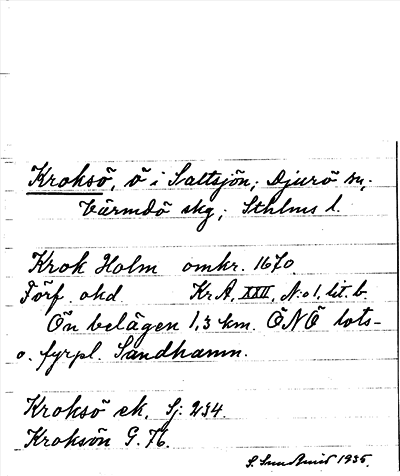 Kroksö, ö i Saltsjön; Djurö sn,
Värmdö skg; Sthlms l.
Krok Holm omkr. 1670
Förf. okd Kr.A, XXII, N:o 1, lit. b.
Ön belägen 1,3 km. ÖNÖ lots-
o. fyrpl. Sandhamn.
Kroksö ek, Sj. 234.
Kroksön G. 76.
S. Sundquist 1935.